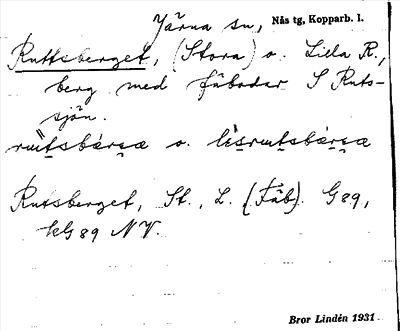 Järna sn, Nås tg, Kopparb. l.
Ruttsberget, (Stora) o. Lilla R.,
berg med fäbodar S Ruts-
sjön.
Rutsberget, St., L. (Fäb). G89,
kG89 NV.
Bror Lindén 1931